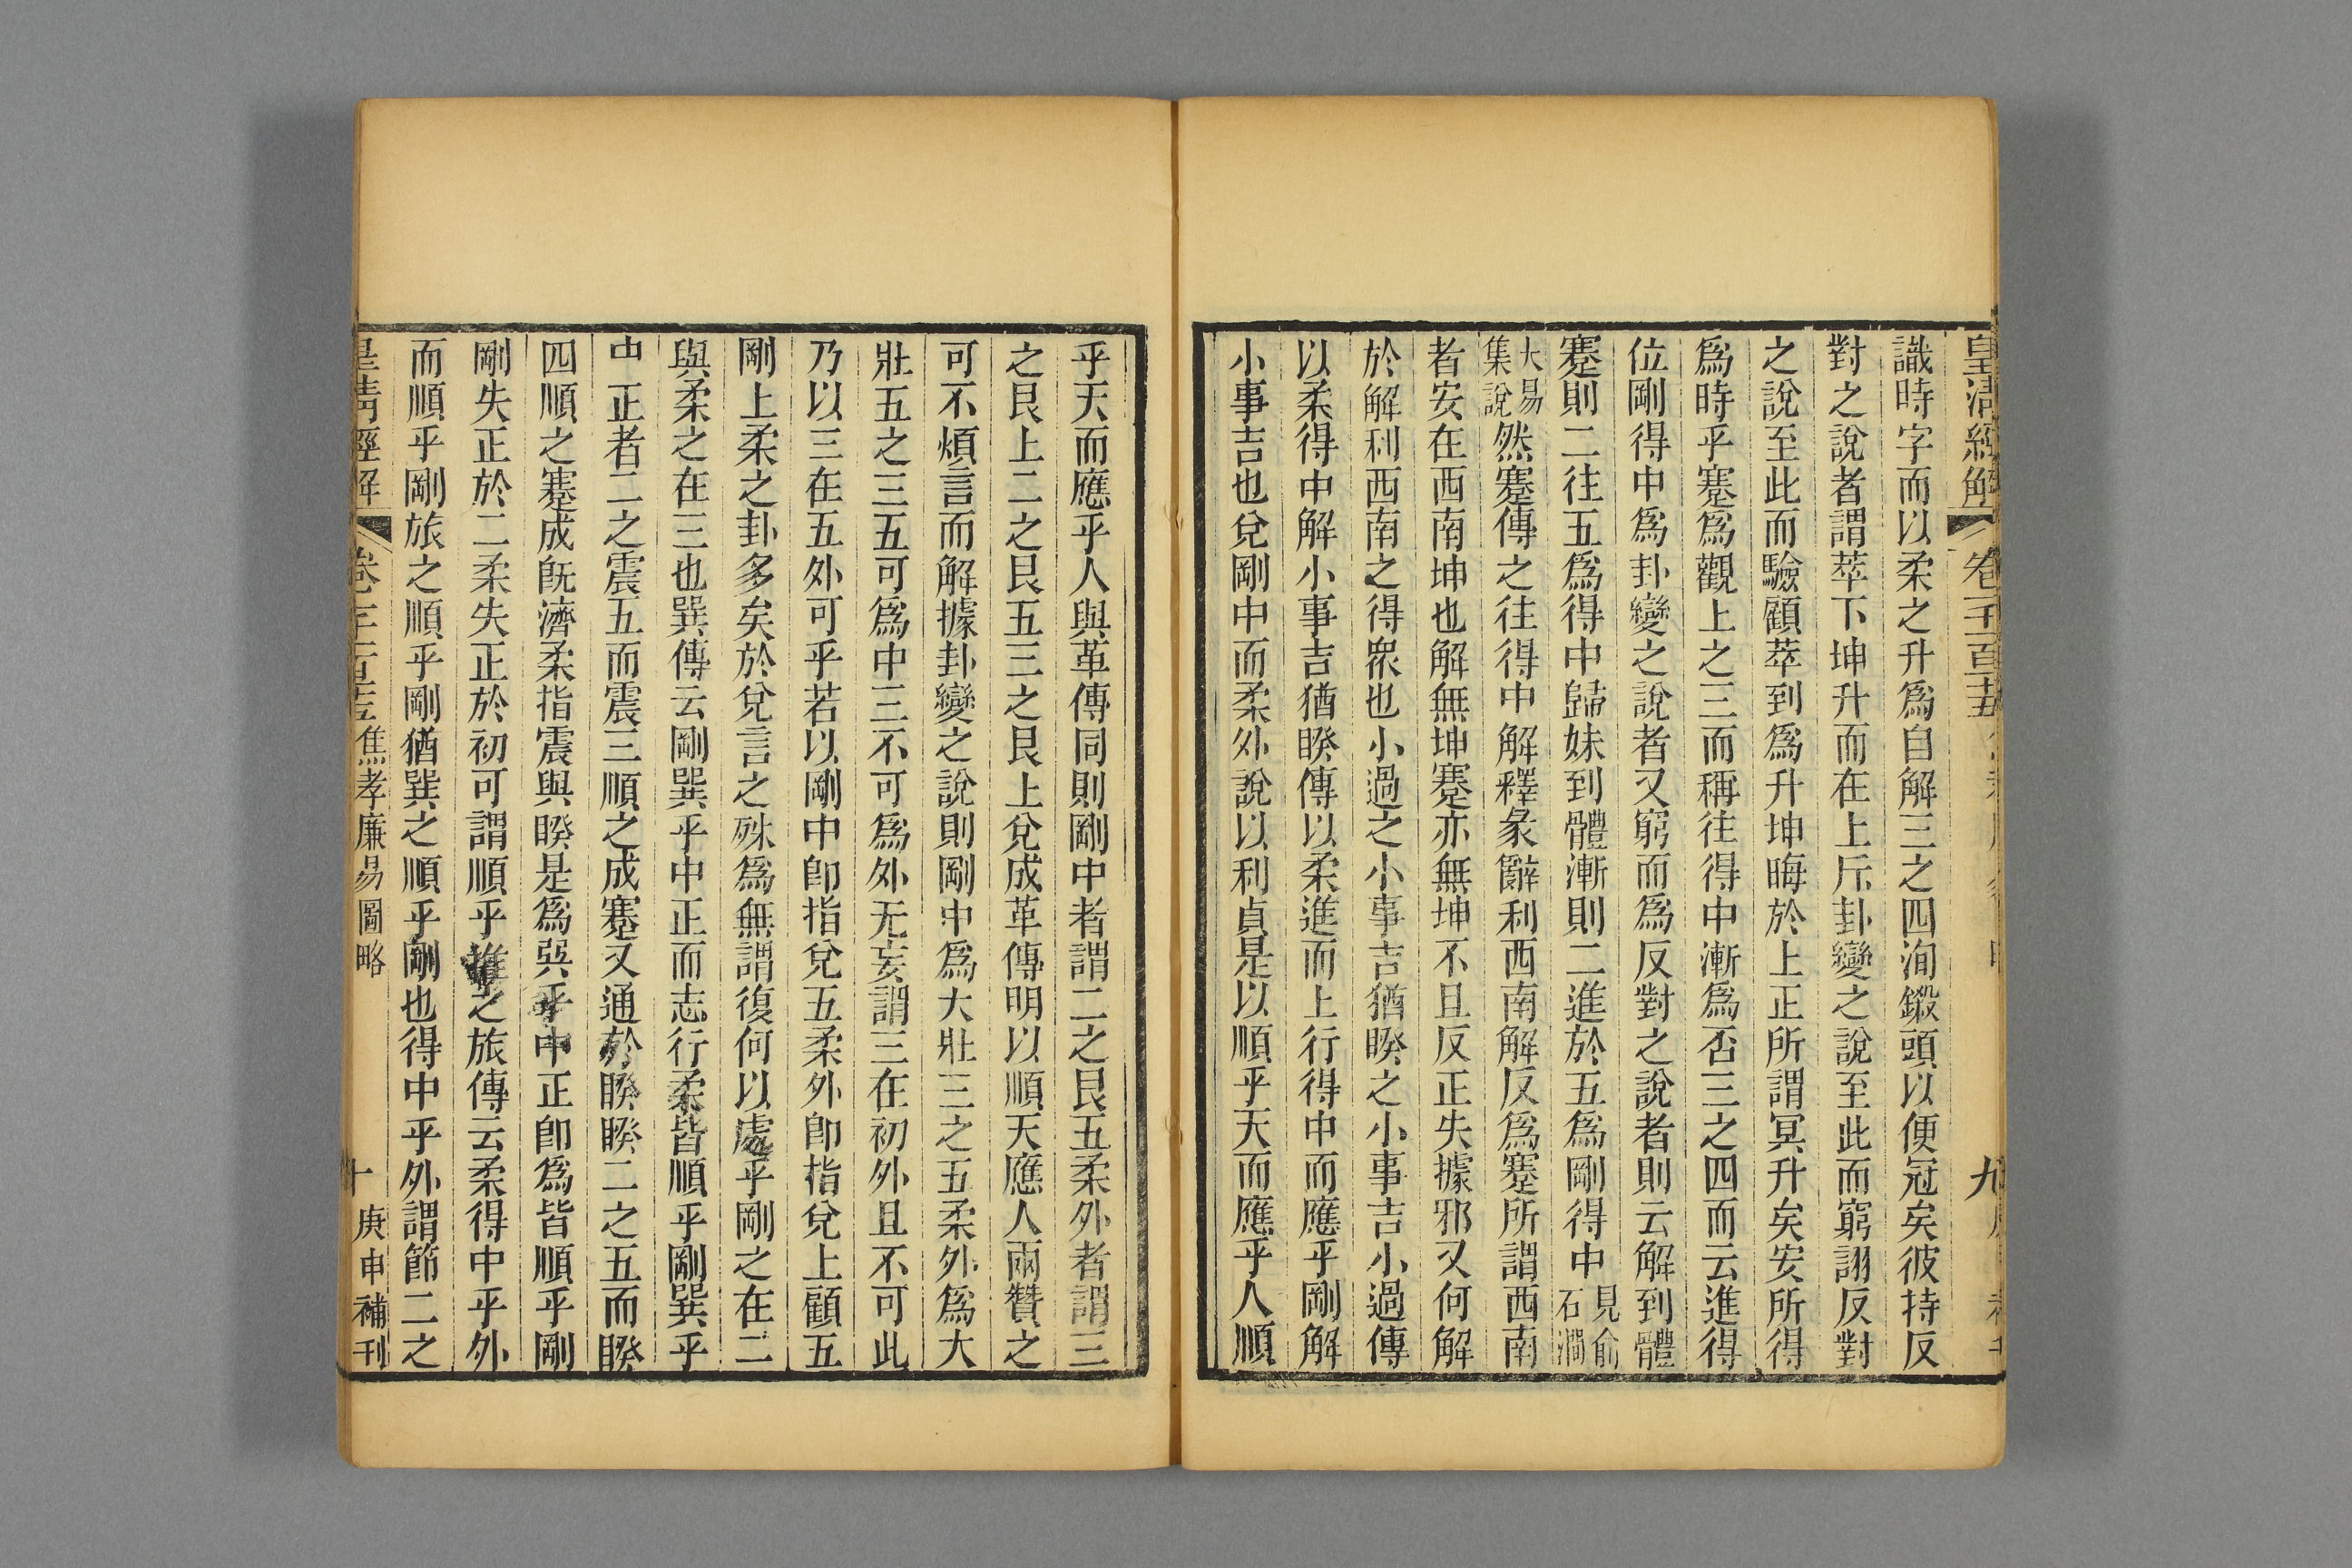 皇清經解 卷一千一百十五 九
識時字而以柔之升爲自解三之四洵鍛頭以便冠矣彼持反
對之說者謂萃下坤升而在上斥卦變之說至此而窮詡反對
之說至此而驗顧萃到爲升坤晦於上正所謂冥升矣安所得
爲時乎蹇爲觀上之三而稱往得中漸爲否三之四而云進得
位剛得中爲卦變之說者又窮而爲反對之說者則云解到體
蹇則二往五爲得中歸妹到體漸則二進於五爲剛得中見俞石澗
大易集說然蹇傳之往得中解釋彖辭利西南解反爲蹇所謂西南
者安在西南坤也解無坤蹇亦無坤不且反正失據邪又何解
於解利西南之得眾也小過之小事吉猶睽之小事吉小過傳
以柔得中解小事吉猶睽傳以柔進而上行得中而應乎剛解
小事吉也兌剛中而柔外說以利貞是以順乎天而應乎人順
乎天而應乎人與革傳同則剛中者謂二之艮五柔外者謂三
之艮上二之艮五三之艮上兌成革傳明以順天應人兩贊之
可不煩言而解據卦變之說則剛中爲大壯三之五柔外爲大
壯五之三五可爲中三不可爲外无妄謂三在初外且不可此
乃以三在五外可乎若以剛中卽指兌五柔外卽指兌上顧五
剛上柔之卦多矣於兌言之殊爲無謂復何以處乎剛之在二
與柔之在三也巽傳云剛巽乎中正而志行柔皆順乎剛巽乎
中正者二之震五而震三順之成蹇又通於睽睽二之五而睽
四順之蹇成旣濟柔指震與睽是爲巽乎中正卽爲皆順乎剛
剛失正於二柔失正於初可謂順乎推之旅傳云柔得中乎外
而順乎剛旅之順乎剛猶巽之順乎剛也得中乎外謂節二之
皇清經解 卷一千一百十五 焦孝廉易圖略 十 庚申補刊